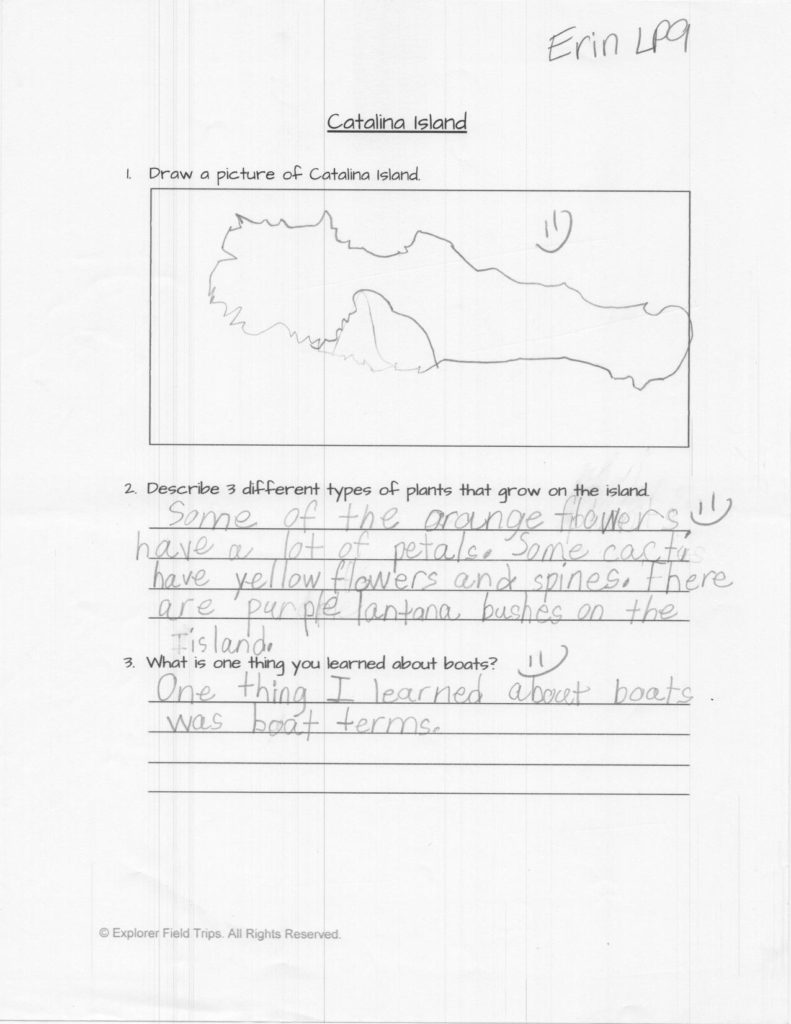 Erin LP9
Catalina Island
1. Draw a picture of Catalina Island.
2. Describe 3 different types of plants that grow on the island.
Some of the orange flowers
have a lot of petals. Some cactus
have yellow flowers and spines. There
are purple lantana bushes on the
Iisland.
3. What is one thing you learned about boats?
One thing I learned about boats
was boat terms.
© Explorer Field Trips. All Rights Reserved.